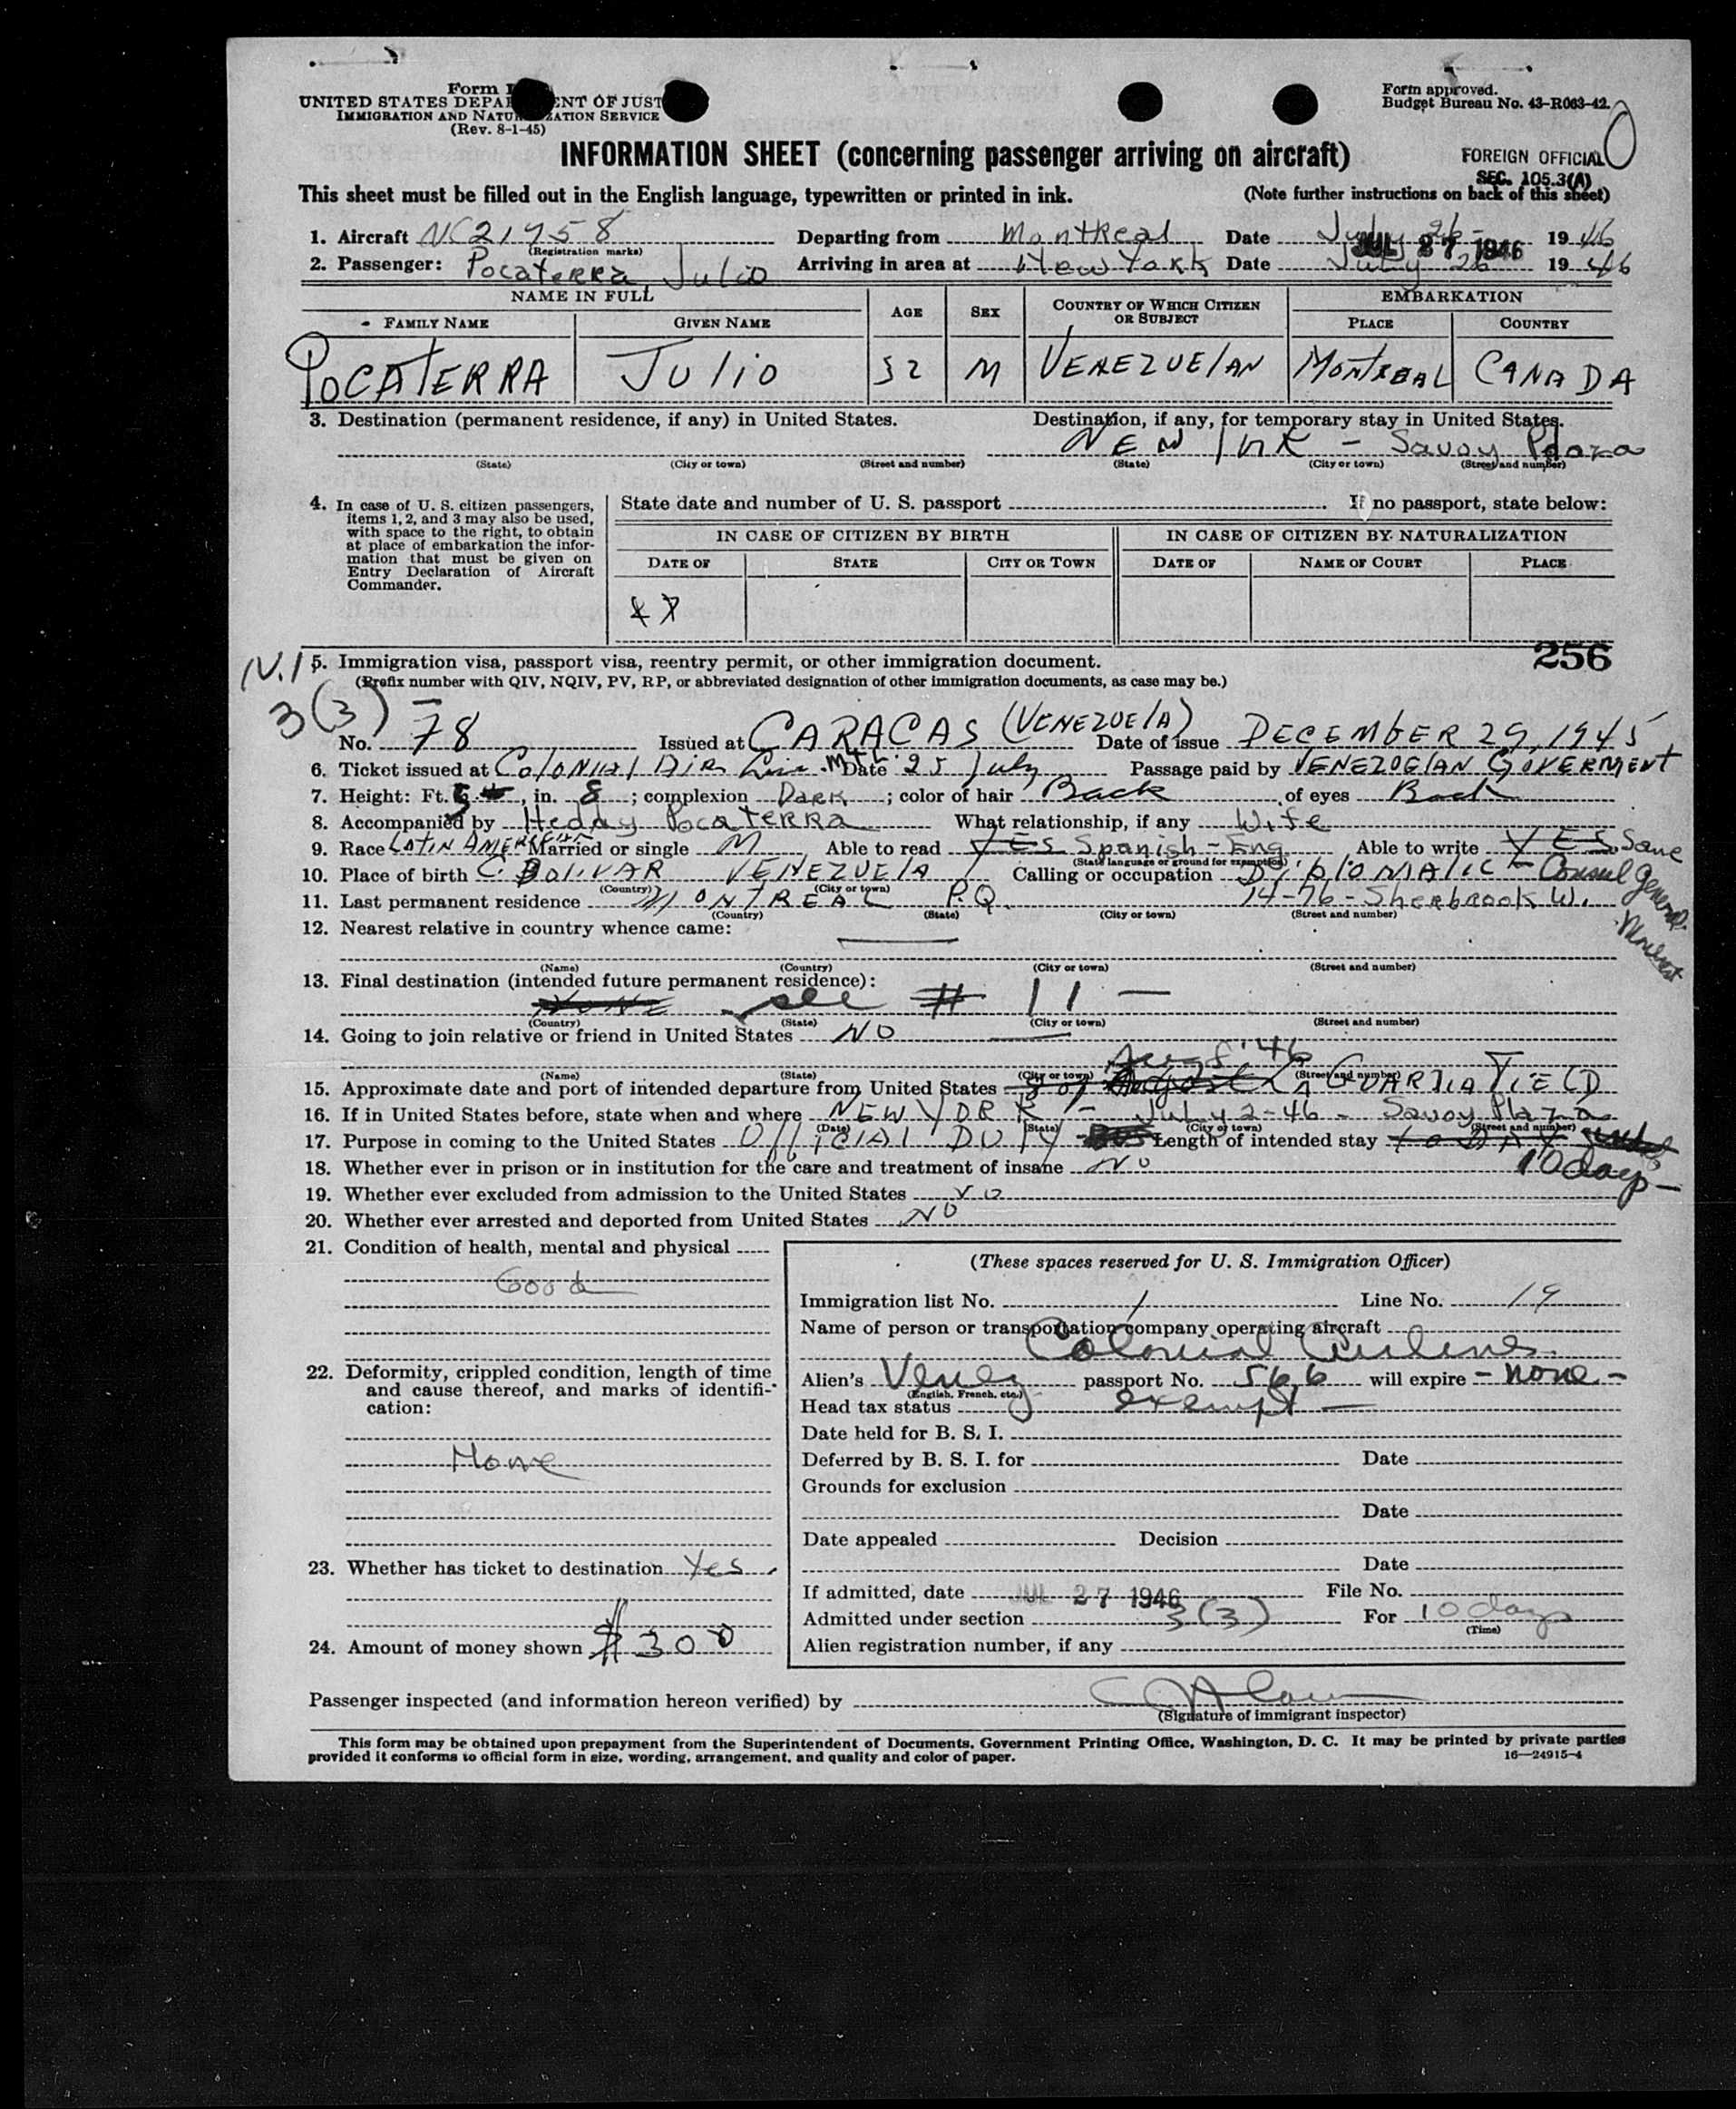 Form I
UNITED STATES DEPA ENT OF JUST
IMMIGRATION AND NATU ZATION SERVICE
(Rev. 8-1-45)
Form approved.
Budget Bureau No. 43-R063-42.
INFORMATION SHEET (concerning passenger arriving on aircraft)
FOREIGN OFFICIAL
SEC. 105.3(A)
This sheet must be filled out in the English language, typewritten or printed in ink.
(Note further instructions on back of this sheet)
1. Aircraft NC21758 Departing from Montreal Date July 26 1946
(Registration marks)
JUL 27 1946
2. Passenger: Pocaterra Julio Arriving in area at New York Date July 26 1946
NAME IN FULL AGE SEX COUNTRY OF WHICH CITIZEN OR SUBJECT EMBARKATION
FAMILY NAME GIVEN NAME PLACE COUNTRY
POCATERRA Julio 52 M VENEZUElAN MONTREAL CANADA
3. Destination (permanent residence, if any) in United States. Destination, if any, for temporary stay in United States.
NEW - Savoy Plaza
(State) (City or town) (Street and number) (State) (City or town) (Street and number)
4. In case of U. S. citizen passengers, items 1, 2, and 3 may also be used, with space to the right, to obtain at place of embarkation the information that must be given on Entry Declaration of Aircraft Commander.
State date and number of U. S. passport If no passport, state below:
IN CASE OF CITIZEN BY BIRTH IN CASE OF CITIZEN BY NATURALIZATION
DATE OF STATE CITY OR TOWN DATE OF NAME OF COURT PLACE
256
5. Immigration visa, passport visa, reentry permit, or other immigration document.
(Prefix number with QIV, NQIV, PV, RP, or abbreviated designation of other immigration documents, as case may be.)
3(3)
No. 78 Issued at CARACAS (VENEZUElA) Date of issue DECEMBER 29, 1945
6. Ticket issued at Colonial Air Line Mtl. Date 25 July Passage paid by VENEZUElAN GOVERMENT
7. Height: Ft. 5, in. 8; complexion Dark; color of hair Back of eyes Back
8. Accompanied by Heddy Pocaterra What relationship, if any Wife
9. Race LATIN AMERICAN Married or single M Able to read YES Spanish-Eng Able to write YES Same
(State language or ground for exemption)
10. Place of birth C. BOLIVAR VENEZUELA Calling or occupation DiploMAtic - Consul General
(Country) (City or town)
11. Last permanent residence MONTREAL P.Q. 14-76-Sherbrook W.
(Country) (State) (City or town) (Street and number)
12. Nearest relative in country whence came:
(Name) (Country) (City or town) (Street and number)
13. Final destination (intended future permanent residence):
NONE see # 11 —
(Country) (State) (City or town) (Street and number)
14. Going to join relative or friend in United States NO
(Name) (State) (City or town) (Street and number)
15. Approximate date and port of intended departure from United States Aug 8 '46 LA GUARDIA FIELD
16. If in United States before, state when and where NEW YORK - July 2-46 - Savoy Plaza
(Date) (State) (City or town) (Street and number)
17. Purpose in coming to the United States OfficiAl DUTY Length of intended stay 10 DAY
10 days —
18. Whether ever in prison or in institution for the care and treatment of insane No
19. Whether ever excluded from admission to the United States NO
20. Whether ever arrested and deported from United States NO
21. Condition of health, mental and physical
Good
22. Deformity, crippled condition, length of time and cause thereof, and marks of identification:
None
23. Whether has ticket to destination Yes
24. Amount of money shown $300
(These spaces reserved for U. S. Immigration Officer)
Immigration list No. 1 Line No. 19
Name of person or transportation company operating aircraft
Colonial Airlines.
Alien's Venez passport No. 566 will expire - none -
(English, French, etc.)
Head tax status exempt —
Date held for B. S. I.
Deferred by B. S. I. for Date
Grounds for exclusion
Date
Date appealed Decision
Date
If admitted, date JUL 27 1946 File No.
Admitted under section 3(3) For 10 days
(Time)
Alien registration number, if any
Passenger inspected (and information hereon verified) by
(Signature of immigrant inspector)
This form may be obtained upon prepayment from the Superintendent of Documents, Government Printing Office, Washington, D. C. It may be printed by private parties
provided it conforms to official form in size, wording, arrangement, and quality and color of paper.
16—24915-4